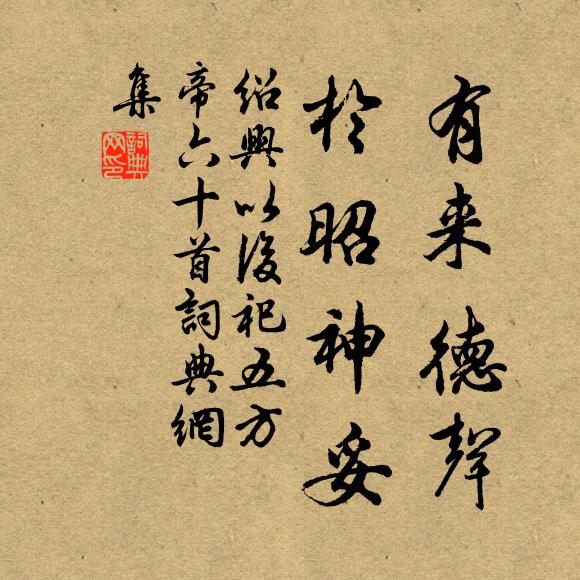 有来德聲
於昭神妥
紹興以後祀五方
帝六十首詞典網
集
詞典
网印